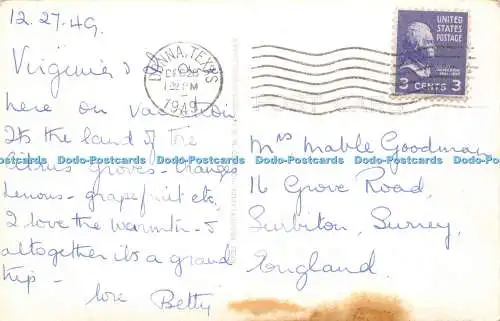 12.27.49.
Virginia &
here on vacation.
It's the land of the
citrus groves - oranges
lemons - grapefruit etc.
I love the warmth - &
altogether it's a grand
trip -
love Betty
DONNA, TEXAS
DEC 28
1 PM
1949
UNITED
STATES
POSTAGE
3 CENTS 3
Mrs Mable Goodman
16 Grove Road,
Surbiton, Surrey,
England.
Dodo-Postcards Dodo-Postcards Dodo-Postcards Dodo-Postcards Dodo-Postcards Dodo-Postcards